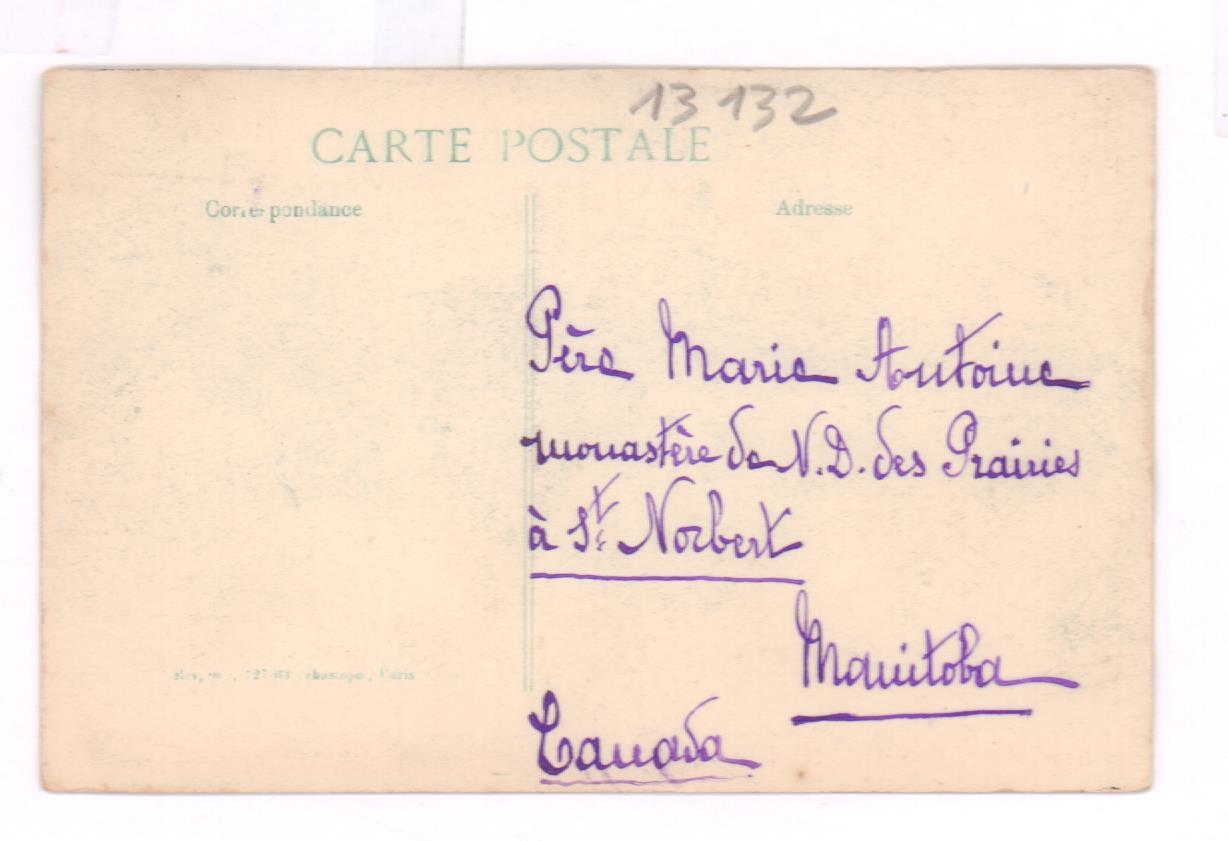 13 132
CARTE POSTALE
Correspondance
Adresse
Père Marie Antoine
monastère de N.D. des Prairies
à St. Norbert
Manitoba
Canada
Paris